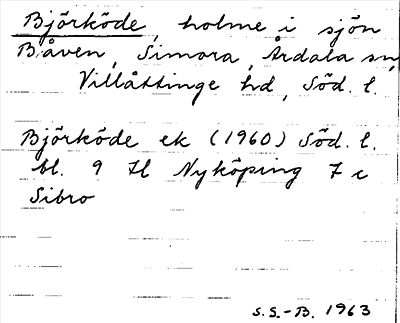 Björköde, holme i sjön
Båven, Simora, Årdala sn,
Villåttinge hd, Söd. l.
Björköde ek (1960) Söd. l.
bl. 9 H Nyköping 7 c
Sibro
S.S.-B. 1963